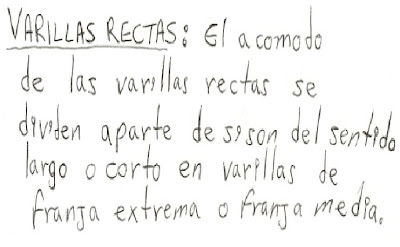 VARILLAS RECTAS: El acomodo
de las varillas rectas se
dividen aparte de si son del sentido
largo o corto en varillas de
franja extrema o franja media.